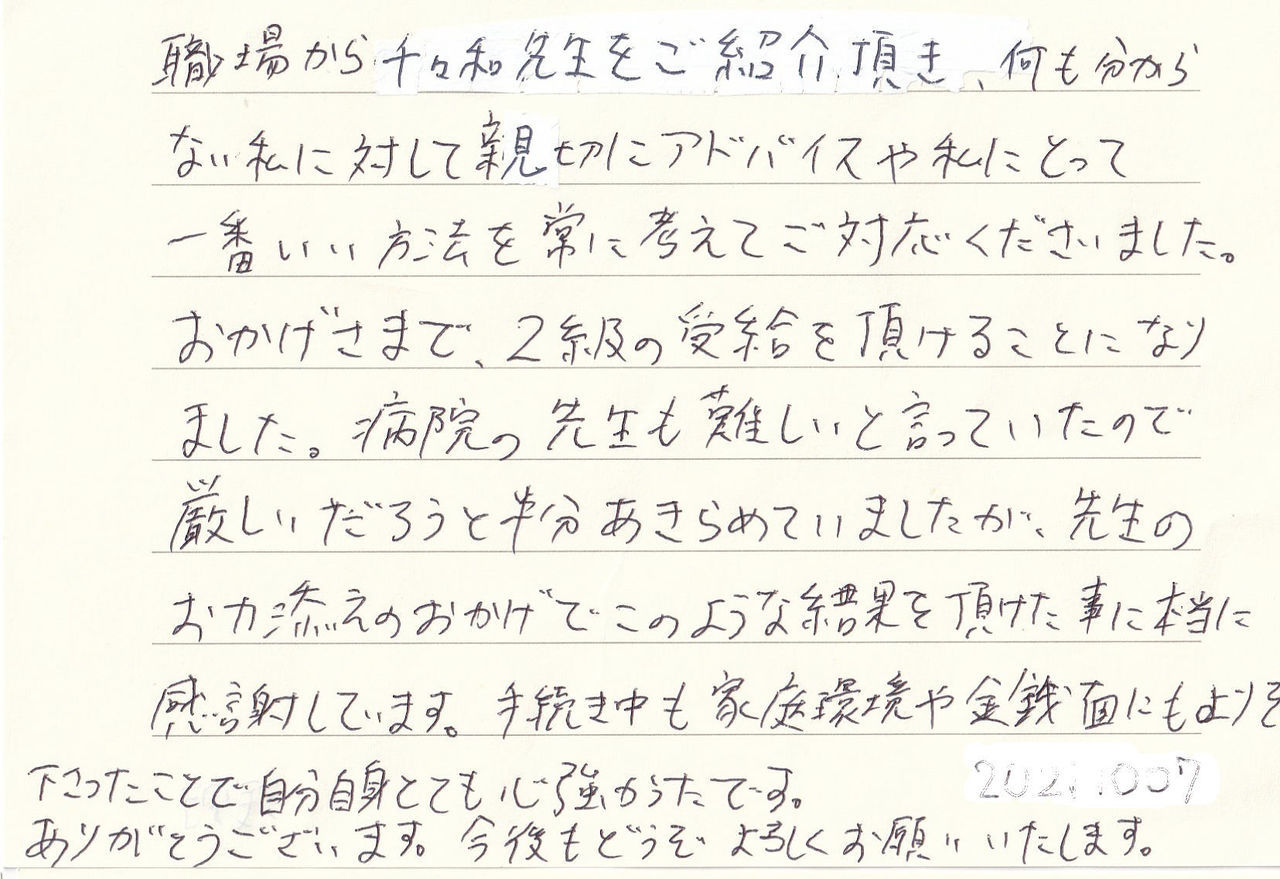 職場から千々和先生をご紹介頂き、何も分から
ない私に対して親切にアドバイスや私にとって
一番いい方法を常に考えてご対応くださいました。
おかげさまで、2級の受給を頂けることになり
ました。病院の先生も難しいと言っていたので
厳しいだろうと半分あきらめていましたが、先生の
お力添えのおかげでこのような結果を頂けた事に本当に
感謝しています。手続き中も家庭環境や金銭面にもよりそ
下さったことで自分自身とても心強かったです。
20211007
ありがとうございます。今後もどうぞよろしくお願いいたします。